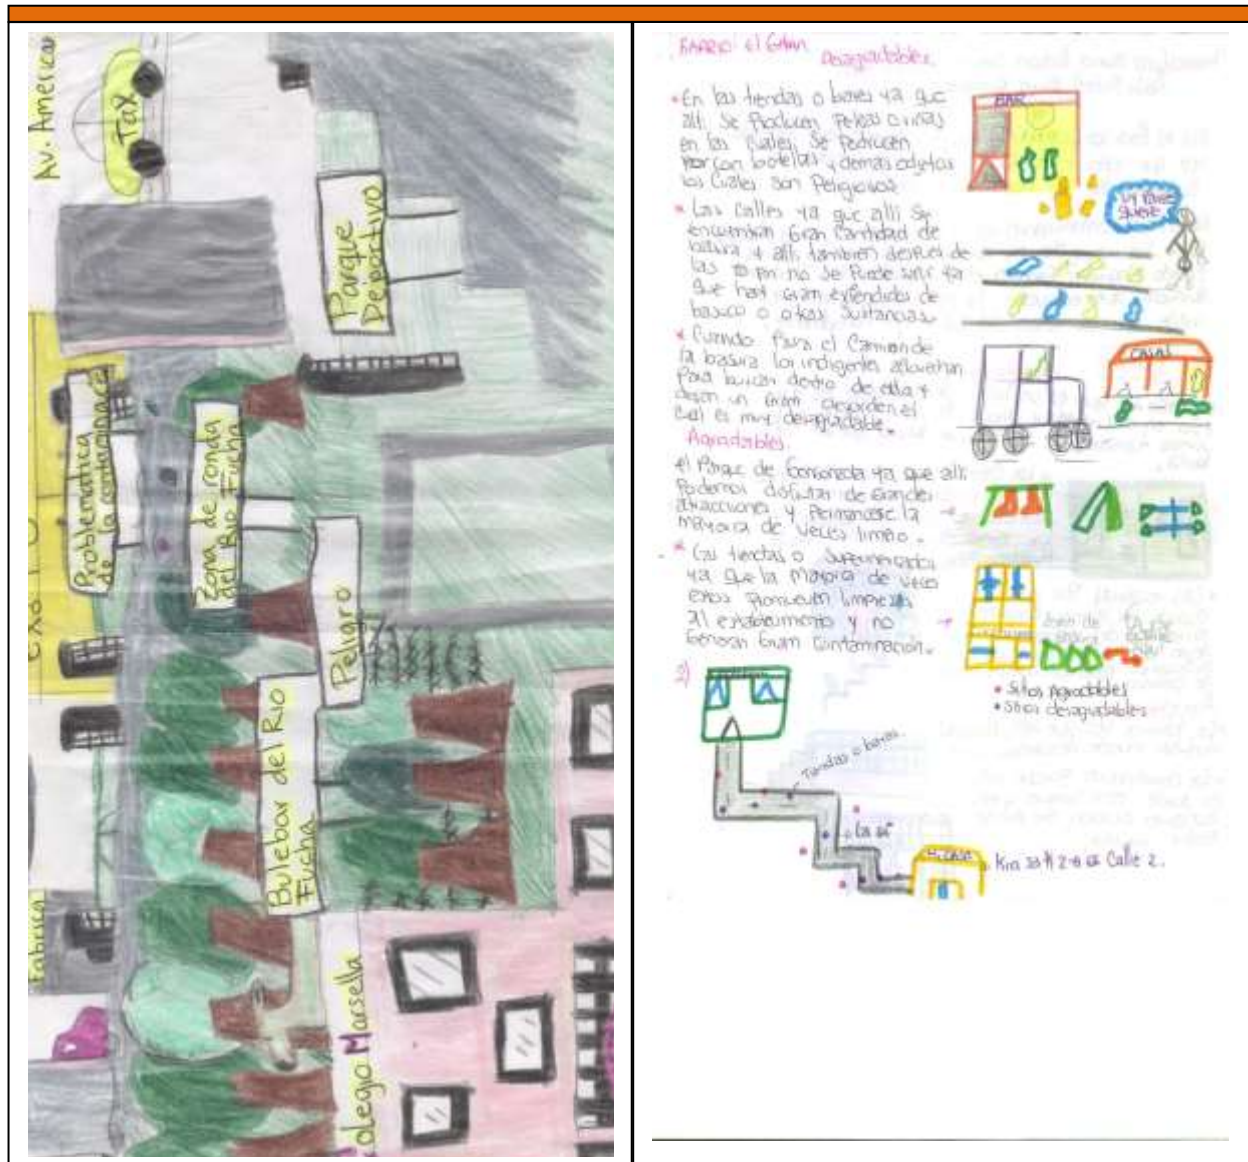 Av. America
Tax
Parque
Deportivo
Problematica
de la contaminacio
Zona de ronda
del Rio Fucha
Pelegro
Bulebar del Rio
Fucha
Fabrica
Colegio Marsella
BARRIO: el Gran
Desagradables.
• En las tiendas o bares ya que
alli Se Producen Peleas o riñas
en las Cuales Se
con botellas y demas objetos
los Cuales Son Peligrosos
* Las Calles ya que alli Se
encuentran Gran Cantidad de
basura y alli tambien despues de
las 10 pm no Se Puede salir ya
que hay Gran expendidos de
basuco o otras Sustancias.
* Cuando Pasa el Camion de
la basura los indigentes
Para buscar dentro de ella y
dejan un Gram desorden el
cual es muy desagradable.
Agradables
el Parque de ya que alli
Podemos disfrutar de Grandes
atracciones y Permanece la
mayoria de veces limpio.
* las tiendas o Supermercados
ya que la mayoria de veces
estos Promueven limpieza
al establecimiento y no
Generan Gram Contaminación.
BAR
CASAS
• Sitios Agradables
• Sitios desagradables
2)
Tiendas o bares
Mi CASA
Calle 2.